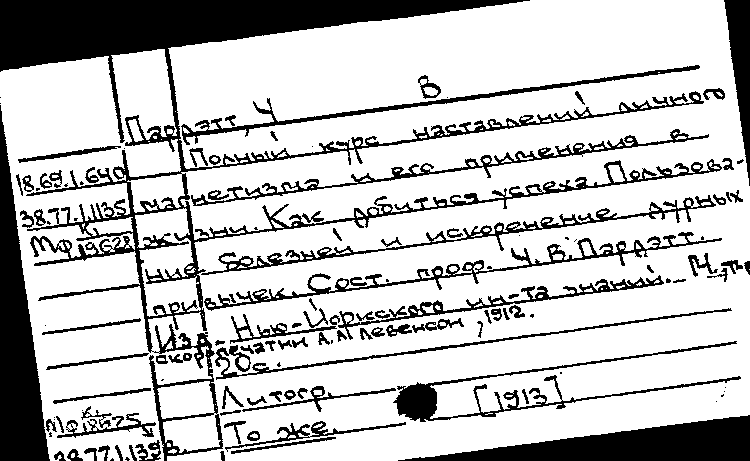 В
Пардэтт, Ч
Полный курс наставлений личного
18.69.1.640
магнетизма и его применения в
38.77.1.1135
жизни. Как добиться успеха. Пользова-
Мф К. 19628
ние болезней и искоренение дурных
привычек. Сост. проф. Ч. В. Пардэтт.
Изд. Нью-Йоркского ин-та знаний. М., тip
скоропечатни А.А. Левенсон, 1912.
20с.
Литогр.
Мф К. 18675
То же. [1913].
38.77.1.1393.